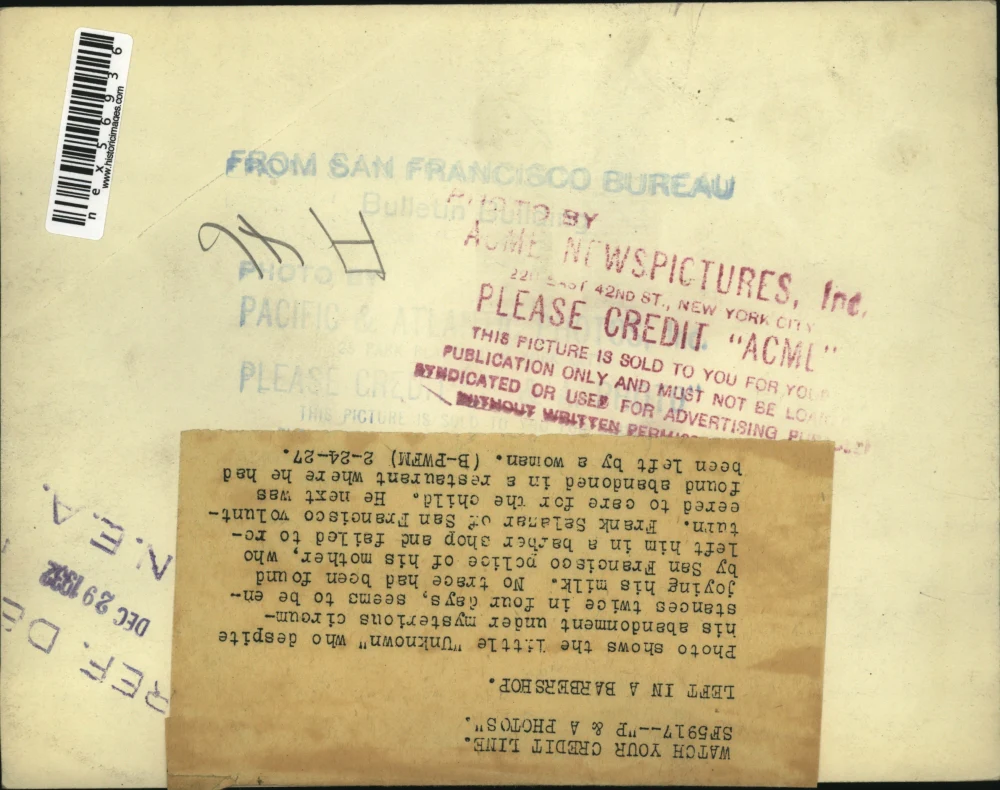 nex569936
www.historicimages.com
FROM SAN FRANCISCO BUREAU
Bulletin Building
PHOTO BY
PACIFIC & ATLANTIC PHOTOS, Inc.
PLEASE CREDIT
THIS PICTURE IS SOLD TO YOU
PHOTO BY
ACME NEWSPICTURES, Inc.
220 EAST 42ND ST., NEW YORK CITY
PLEASE CREDIT "ACME"
THIS PICTURE IS SOLD TO YOU FOR YOUR
PUBLICATION ONLY AND MUST NOT BE LOANED
SYNDICATED OR USED FOR ADVERTISING PURPOSES
WITHOUT WRITTEN PERMISSION
WATCH YOUR CREDIT LINE.
SF5917--"P & A PHOTOS".
LEFT IN A BARBERSHOP.
Photo shows the little "Unknown" who despite
his abandonment under mysterious circum-
stances twice in four days, seems to be en-
joying his milk. No trace had been found
by San Francisco police of his mother, who
left him in a barber shop and failed to re-
turn. Frank Salazar of San Francisco volunt-
eered to care for the child. He next was
found abandoned in a restaurant where he had
been left by a woman. (B-PWFM) 2-24-27.
REF. DE
DEC 29 1932
N.E.A.